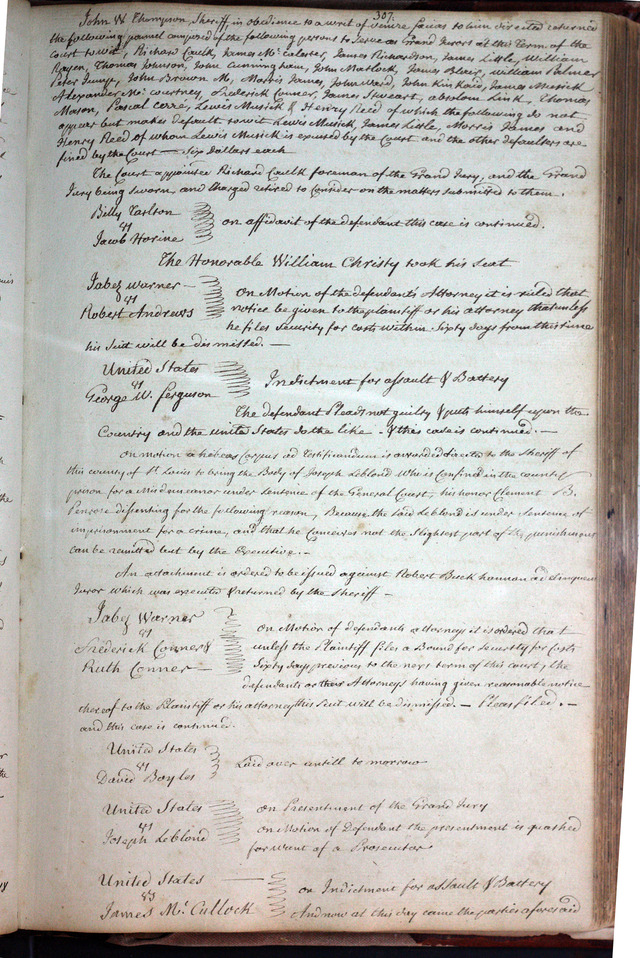 307.
John W Thompson, Sheriff, in obedience to a writ of Venire facias to him directed returned
the following pannel composed of the following persons to serve as Grand Jurors at this Term of the
Court to wit, Richard Caulk, James Mc. James Richardson, James Little, William
Thomas Johnson, John Cunningham, John Matlock, James Blair, William Palmer
Peter Jump, John Brown M, Morris James, John Ward, John Kinkaid, James Musick
Alexander Mc. Courtney, Frederick Conner, James Stewart, absolom Link, Thomas
Mason, Pascal Cerré, Lewis Musick & Henry Reed of which the following do not
appear but makes default to wit Lewis Musick, James Little, Morris James and
Henry Reed of whom Lewis Musick is excused by the Court and the other defaulters are
fined by the Court — Six dollars each
The Court appointed Richard Caulk foreman of the Grand Jury, and the Grand
Jury being sworn and charged retired to Consider on the matters submitted to them.
Billy Tarlton
vs
Jacob Horine
on affidavit of the defendant this case is continued.
The Honorable William Christy took his Seat
Jabez Warner —
vs
Robert Andrews
On Motion of the defendant's Attorney it is ruled that
notice be given to the plaintiff or his attorney that unless
he files Security for costs within Sixty days from this time
his Suit will be dismissed. —
United States
vs
George W. Ferguson
Indictment for assault & Battery
The defendant Pleads not guilty & puts himself upon the
Country and the united States do the like - & this case is continued. —
on motion a habeas Corpus ad Testificandum is awarded directed to the Sheriff of
this county of St Louis to bring the Body of Joseph Leblond Who is Confined in the county
prison for a Misdemeanor under Sentence of the General Court, his honor Clement B.
Penrose dissenting for the following reason, Because the said Leblond is under Sentence of
imprisonment for a crime, and that he Conceives not the Slightest part of the punishment
can be remitted but by the Executive. —
An attachment is ordered to be issued against Robert Buckhannan a delinquent
Juror which was executed & returned by the Sheriff —
Jabez Warner
vs
Frederick Conner &
Ruth Conner —
On Motion of defendants attorneys it is ordered that
unless the Plaintiff files a Bound for Security for Costs
Sixty days previous to the next term of this court, the
defendants or their Attorneys having given reasonable notice
thereof to the Plaintiff or his attorney this Suit will be dismissed. — Pleas filed. —
and this case is continued.
United States
vs
David Boyles
Laid over untill to morrow
United States
vs
Joseph Leblond
on Presentment of the Grand Jury
on Motion of Defendant the presentment is quashed
for want of a Prosecutor
United States —
vs
James Mc. Cullock
on Indictment for assault & Battery
And now at this day came the parties aforesaid